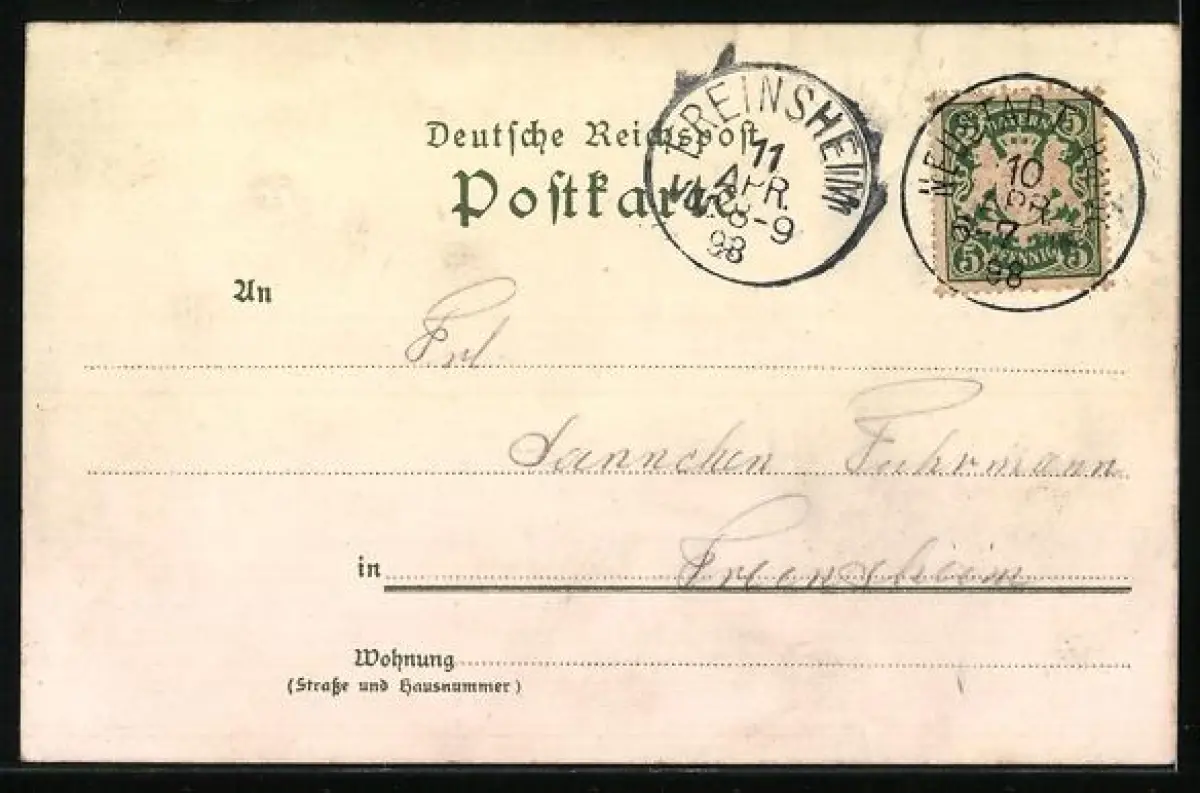 Deutsche Reichspost
Postkarte
FREINSHEIM
11
APR.
V.M.8-9
98
NEUSTADT
10
APR.
6-7
98
BAYERN
5 5
5 PFENNIG 5
An
Frl
Sannchen Fuhrmann
in Freinsheim
Wohnung
(Straße und Hausnummer)